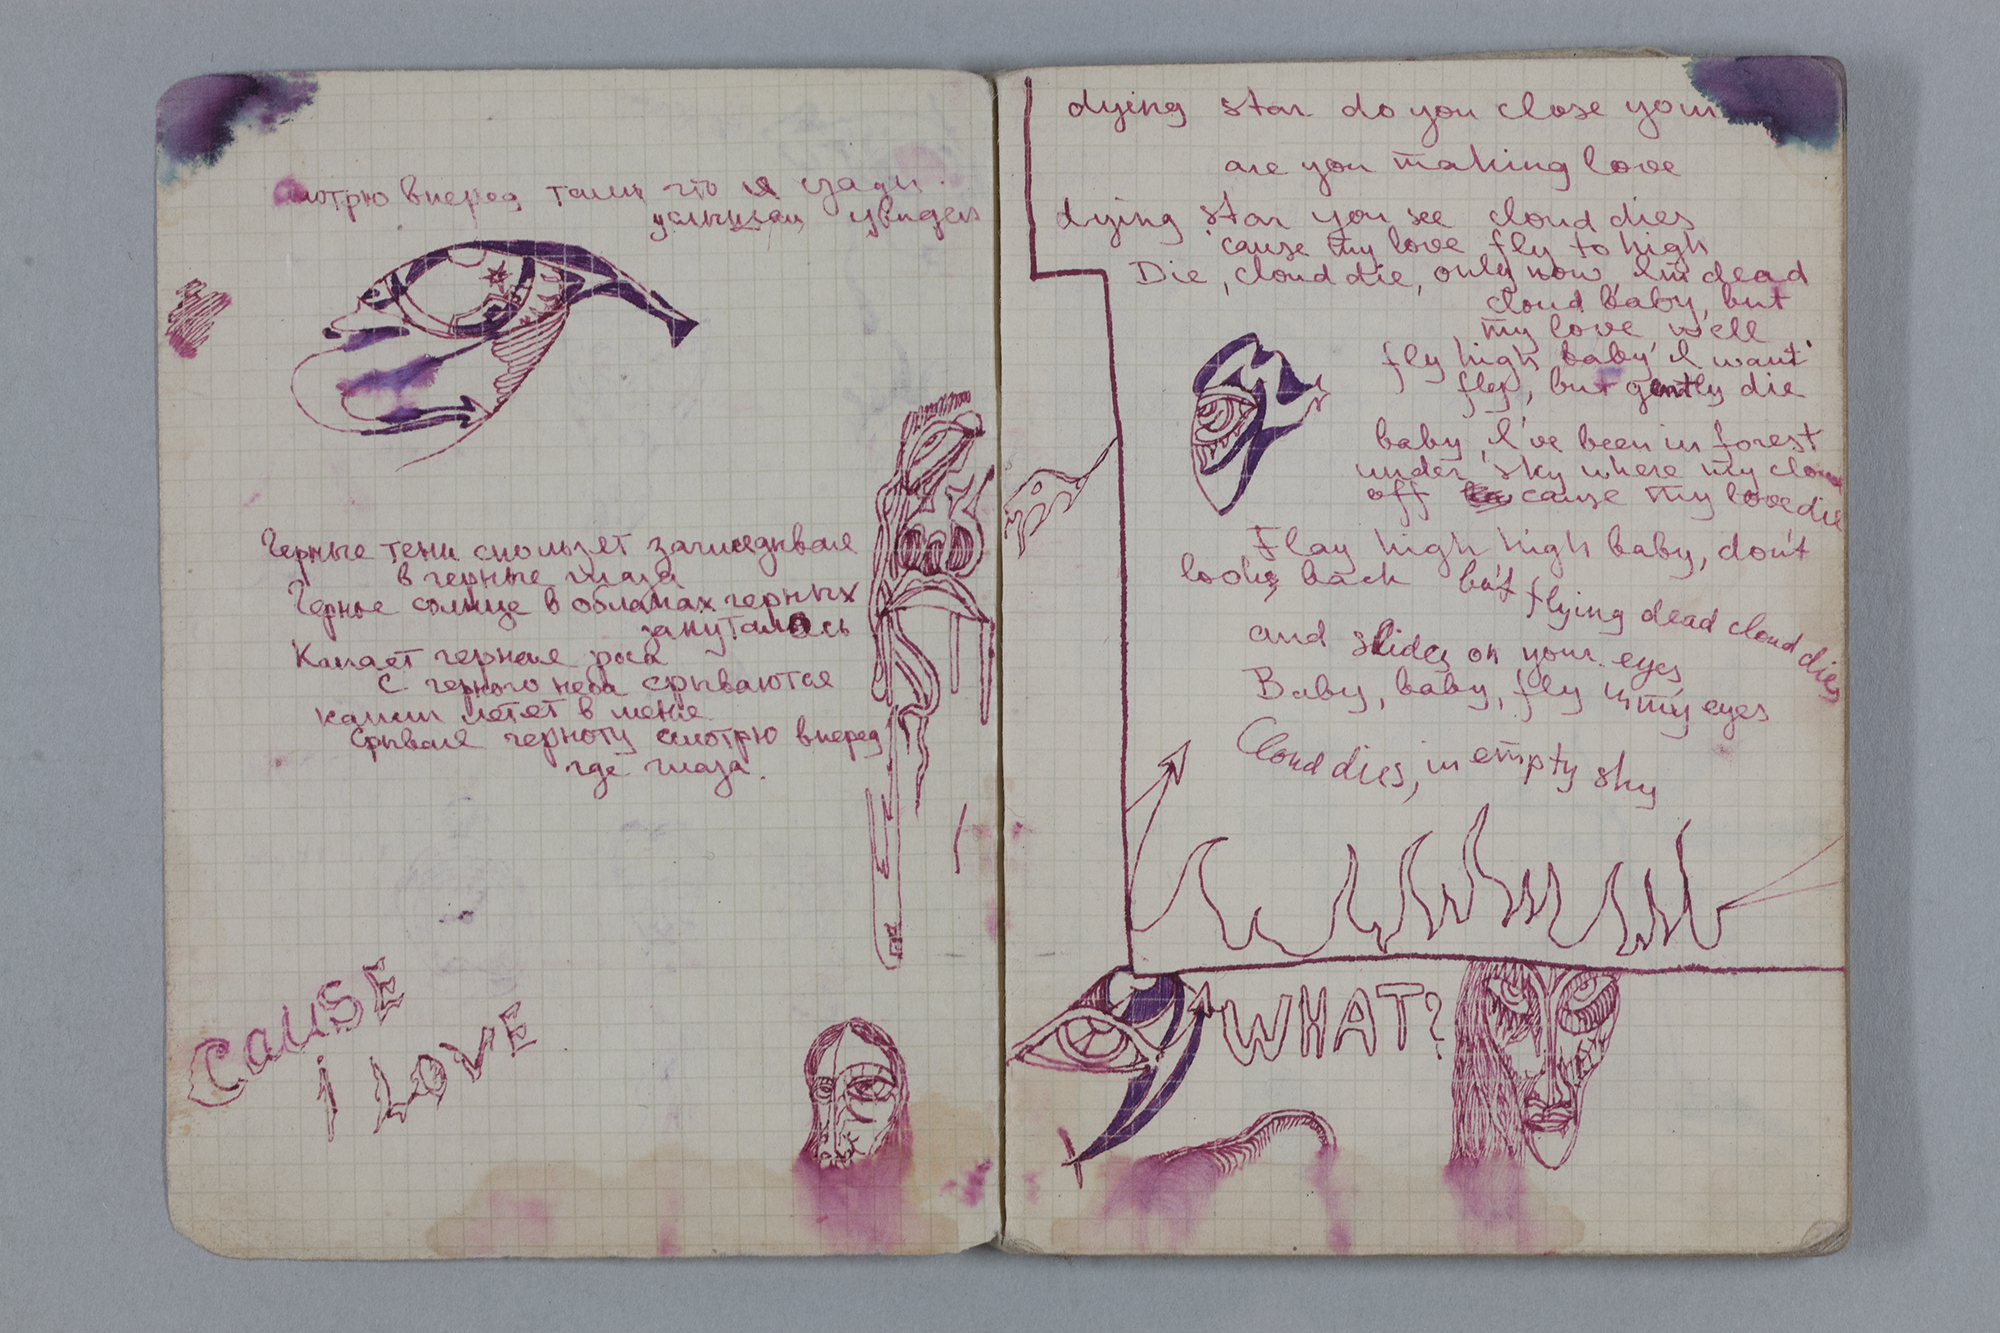 смотрю вперед там что я сзади
услышал увидел
Черные тени скользят заглядывая
в черные глаза
Черное солнце в облаках черных
запуталось
Капает черная роса
с черного неба срываются
капли летят в меня
Срывая черноту смотрю вперед
где глаза.
CAUSE
I LOVE
dying star do you close your
are you making love
dying star you see cloud dies
'cause my love fly to high
Die, cloud die, only now I'm dead
cloud baby, but
my love well
fly high baby I want
fly, but gently die
baby, I've been in forest
under sky where my cloud
off cause my love die
Flay high high baby, don't
looks back but flying dead cloud dies
and slides on your eyes
Baby, baby, fly in my eyes
Cloud dies, in empty sky
WHAT?